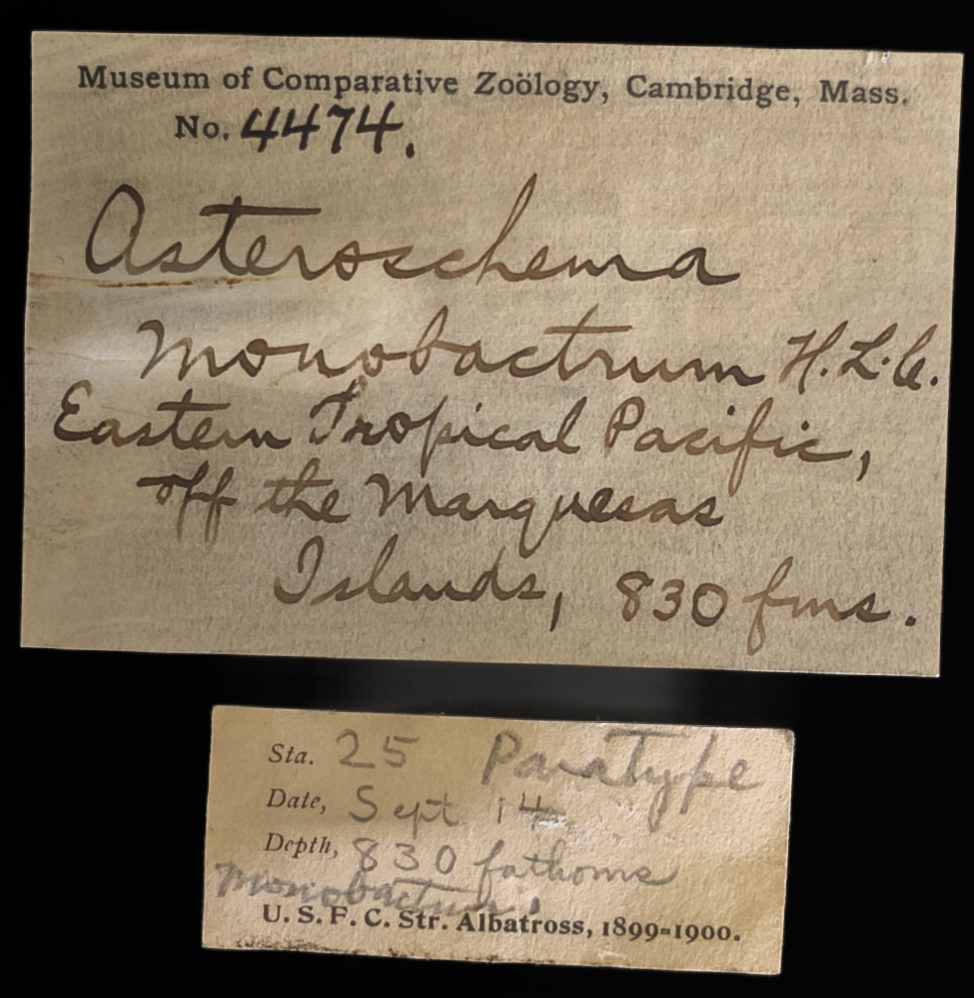 Museum of Comparative Zoölogy, Cambridge, Mass.
No. 4474.
Asteroschema
monobactrum H.L.C.
Eastern Tropical Pacific,
off the Marquesas
Islands, 830 fms.
Sta. 25 Paratype
Date, Sept. 14
Depth, 830 fathoms
monobactrum.
U. S. F. C. Str. Albatross, 1899=1900.